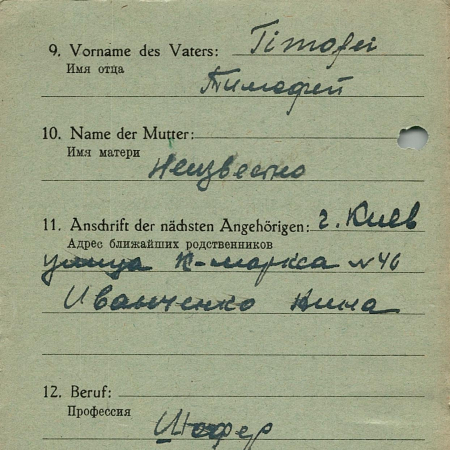 9. Vorname des Vaters: Timofei
Имя отца
Тимофей
10. Name der Mutter:
Имя матери
Неизвестно
11. Anschrift der nächsten Angehörigen: г. Киев
Адрес ближайших родственников
улица К-маркса №46
Иванченко Нина
12. Beruf:
Профессия
Шофер